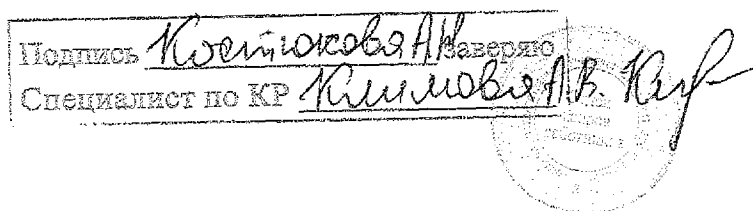 Подпись Костюкова А.Н. заверяю
Специалист по КР Климова А.В.